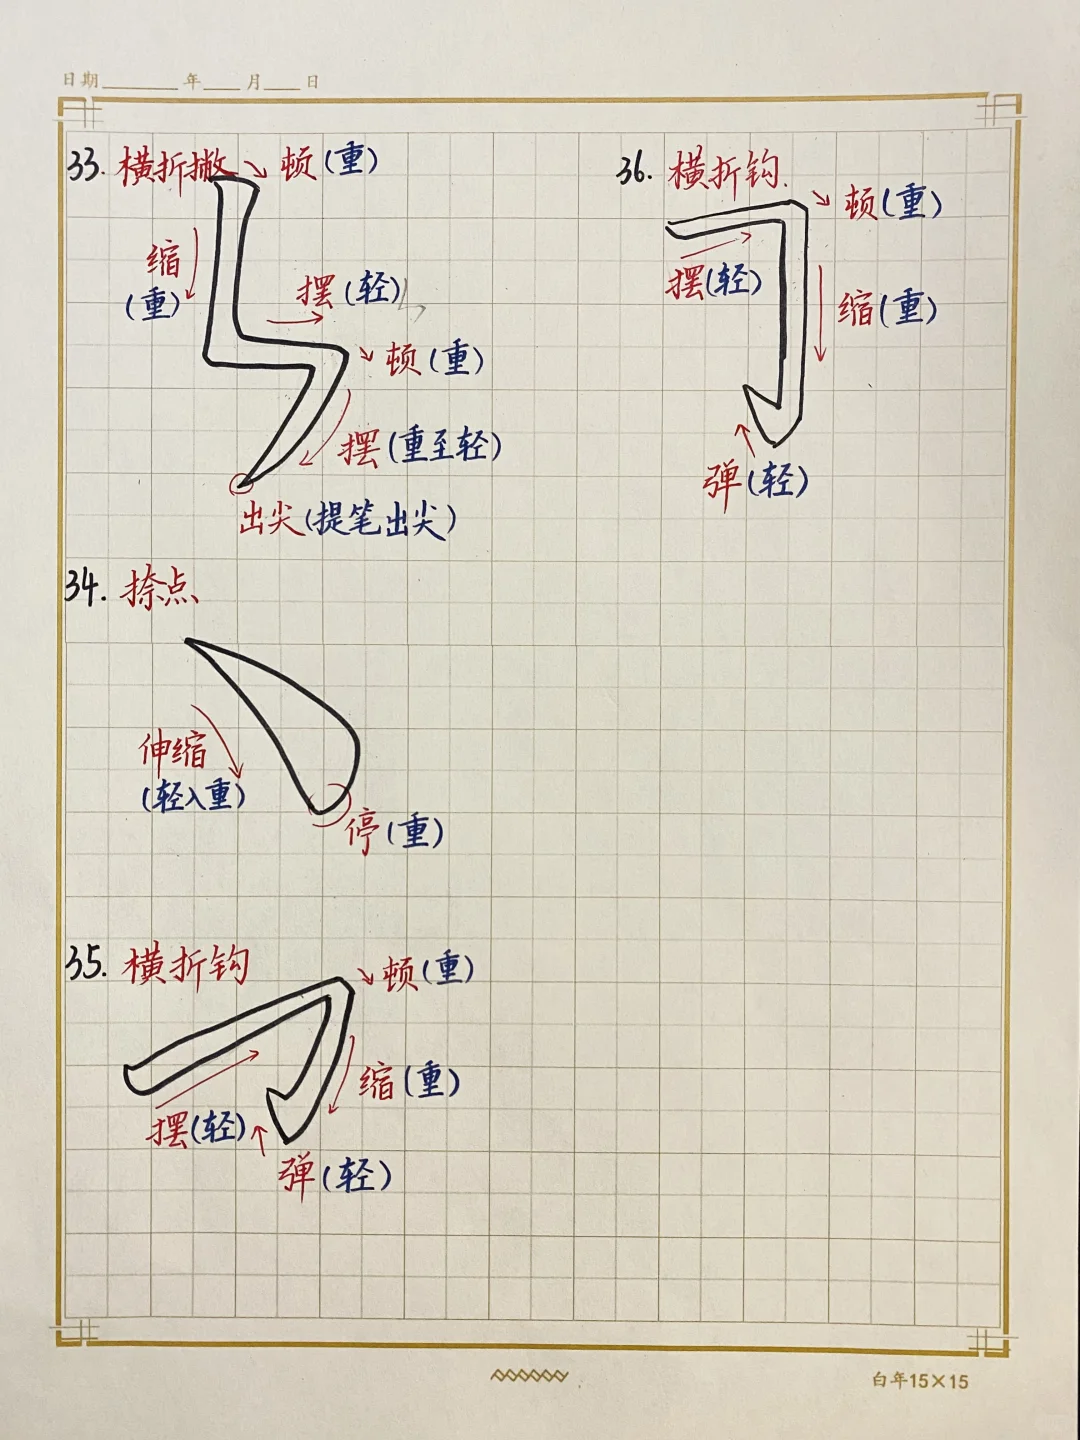 日期____年__月__日
33. 横折撇 顿(重)
缩
(重)
摆(轻)
顿(重)
摆(重至轻)
出尖(提笔出尖)
36. 横折钩
顿(重)
摆(轻)
缩(重)
弹(轻)
34. 捺点
伸缩
(轻入重)
停(重)
35. 横折钩
顿(重)
缩(重)
摆(轻)
弹(轻)
白年15×15